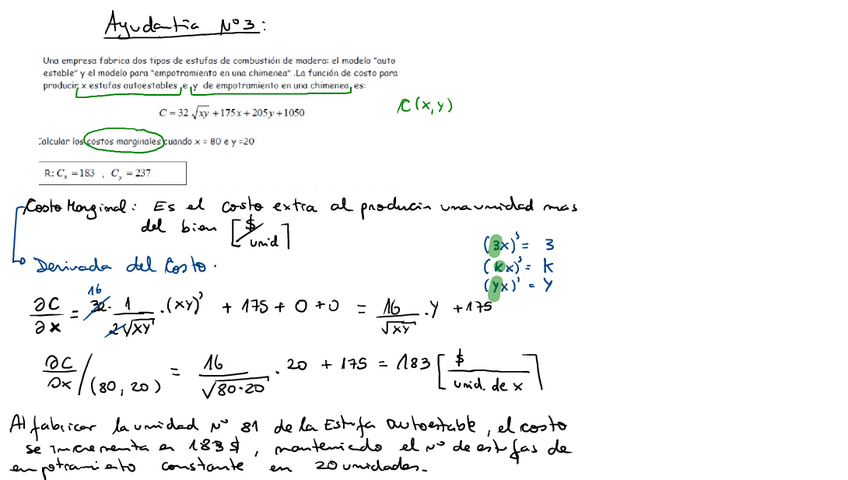 Ayudantía N°3:
Una empresa fabrica dos tipos de estufas de combustión de madera: el modelo "auto
estable" y el modelo para "empotramiento en una chimenea" .La función de costo para
producir x estufas autoestables e y de empotramiento en una chimenea es:
C = 32 √xy + 175x + 205y + 1050
C(x,y)
Calcular los costos marginales cuando x = 80 e y =20
R: Cx = 183 , Cy = 237
Costo Marginal: Es el costo extra al producir una unidad mas
del bien [$/unid]
(3x)' = 3
Derivada del Costo.
(kx)' = k
(yx)' = y
∂C/∂x = 32 16 · 1/(2√xy) · (xy)' + 175 + 0 + 0 = 16/√xy · y + 175
∂C/∂x /(80, 20) = 16/√(80·20) · 20 + 175 = 183 [$/unid. de x]
Al fabricar la unidad N° 81 de la Estufa autoestable, el costo
se incrementa en 183$, manteniendo el N° de estufas de
empotramiento constante en 20 unidades.